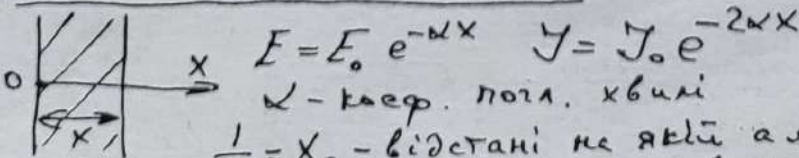 0 x X E = E₀ e^{-αx} J = J₀ e^{-2αx}
α - коеф. погл. хвилі
1 - X - відстані на якій а